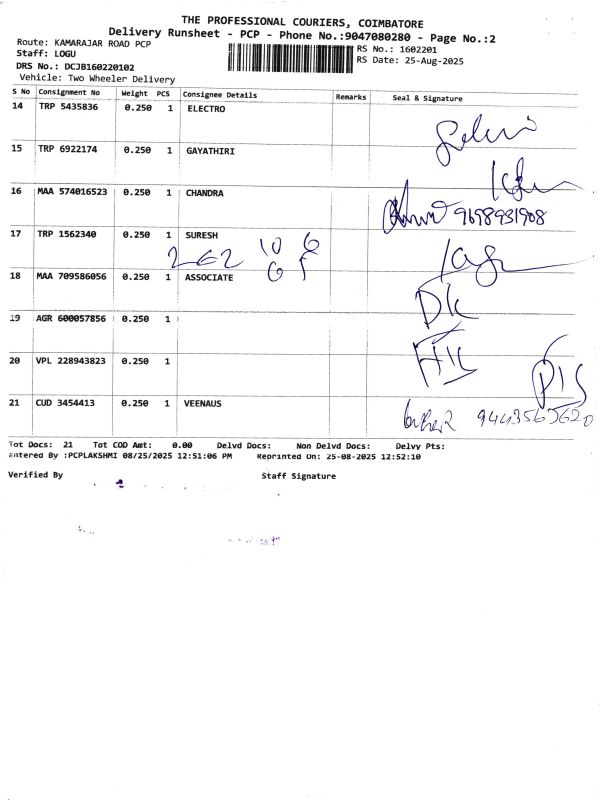 THE PROFESSIONAL COURIERS, COIMBATORE
Delivery Runsheet - PCP - Phone No.:9047080280 - Page No.:2
Route: KAMARAJAR ROAD PCP
Staff: LOGU
DRS No.: DCJB160220102
Vehicle: Two Wheeler Delivery
RS No.: 1602201
RS Date: 25-Aug-2025
S No Consignment No Weight PCS Consignee Details Remarks Seal & Signature
14 TRP 5435836 0.250 1 ELECTRO
15 TRP 6922174 0.250 1 GAYATHIRI
16 MAA 574016523 0.250 1 CHANDRA 9698931908
17 TRP 1562340 0.250 1 SURESH
18 MAA 709586056 0.250 1 ASSOCIATE
19 AGR 600057856 0.250 1
20 VPL 228943823 0.250 1
21 CUD 3454413 0.250 1 VEENAUS
Tot Docs: 21 Tot COD Amt: 0.00 Delvd Docs: Non Delvd Docs: Delvy Pts:
Entered By :PCPLAKSHMI 08/25/2025 12:51:06 PM Reprinted On: 25-08-2025 12:52:10
Verified By Staff Signature